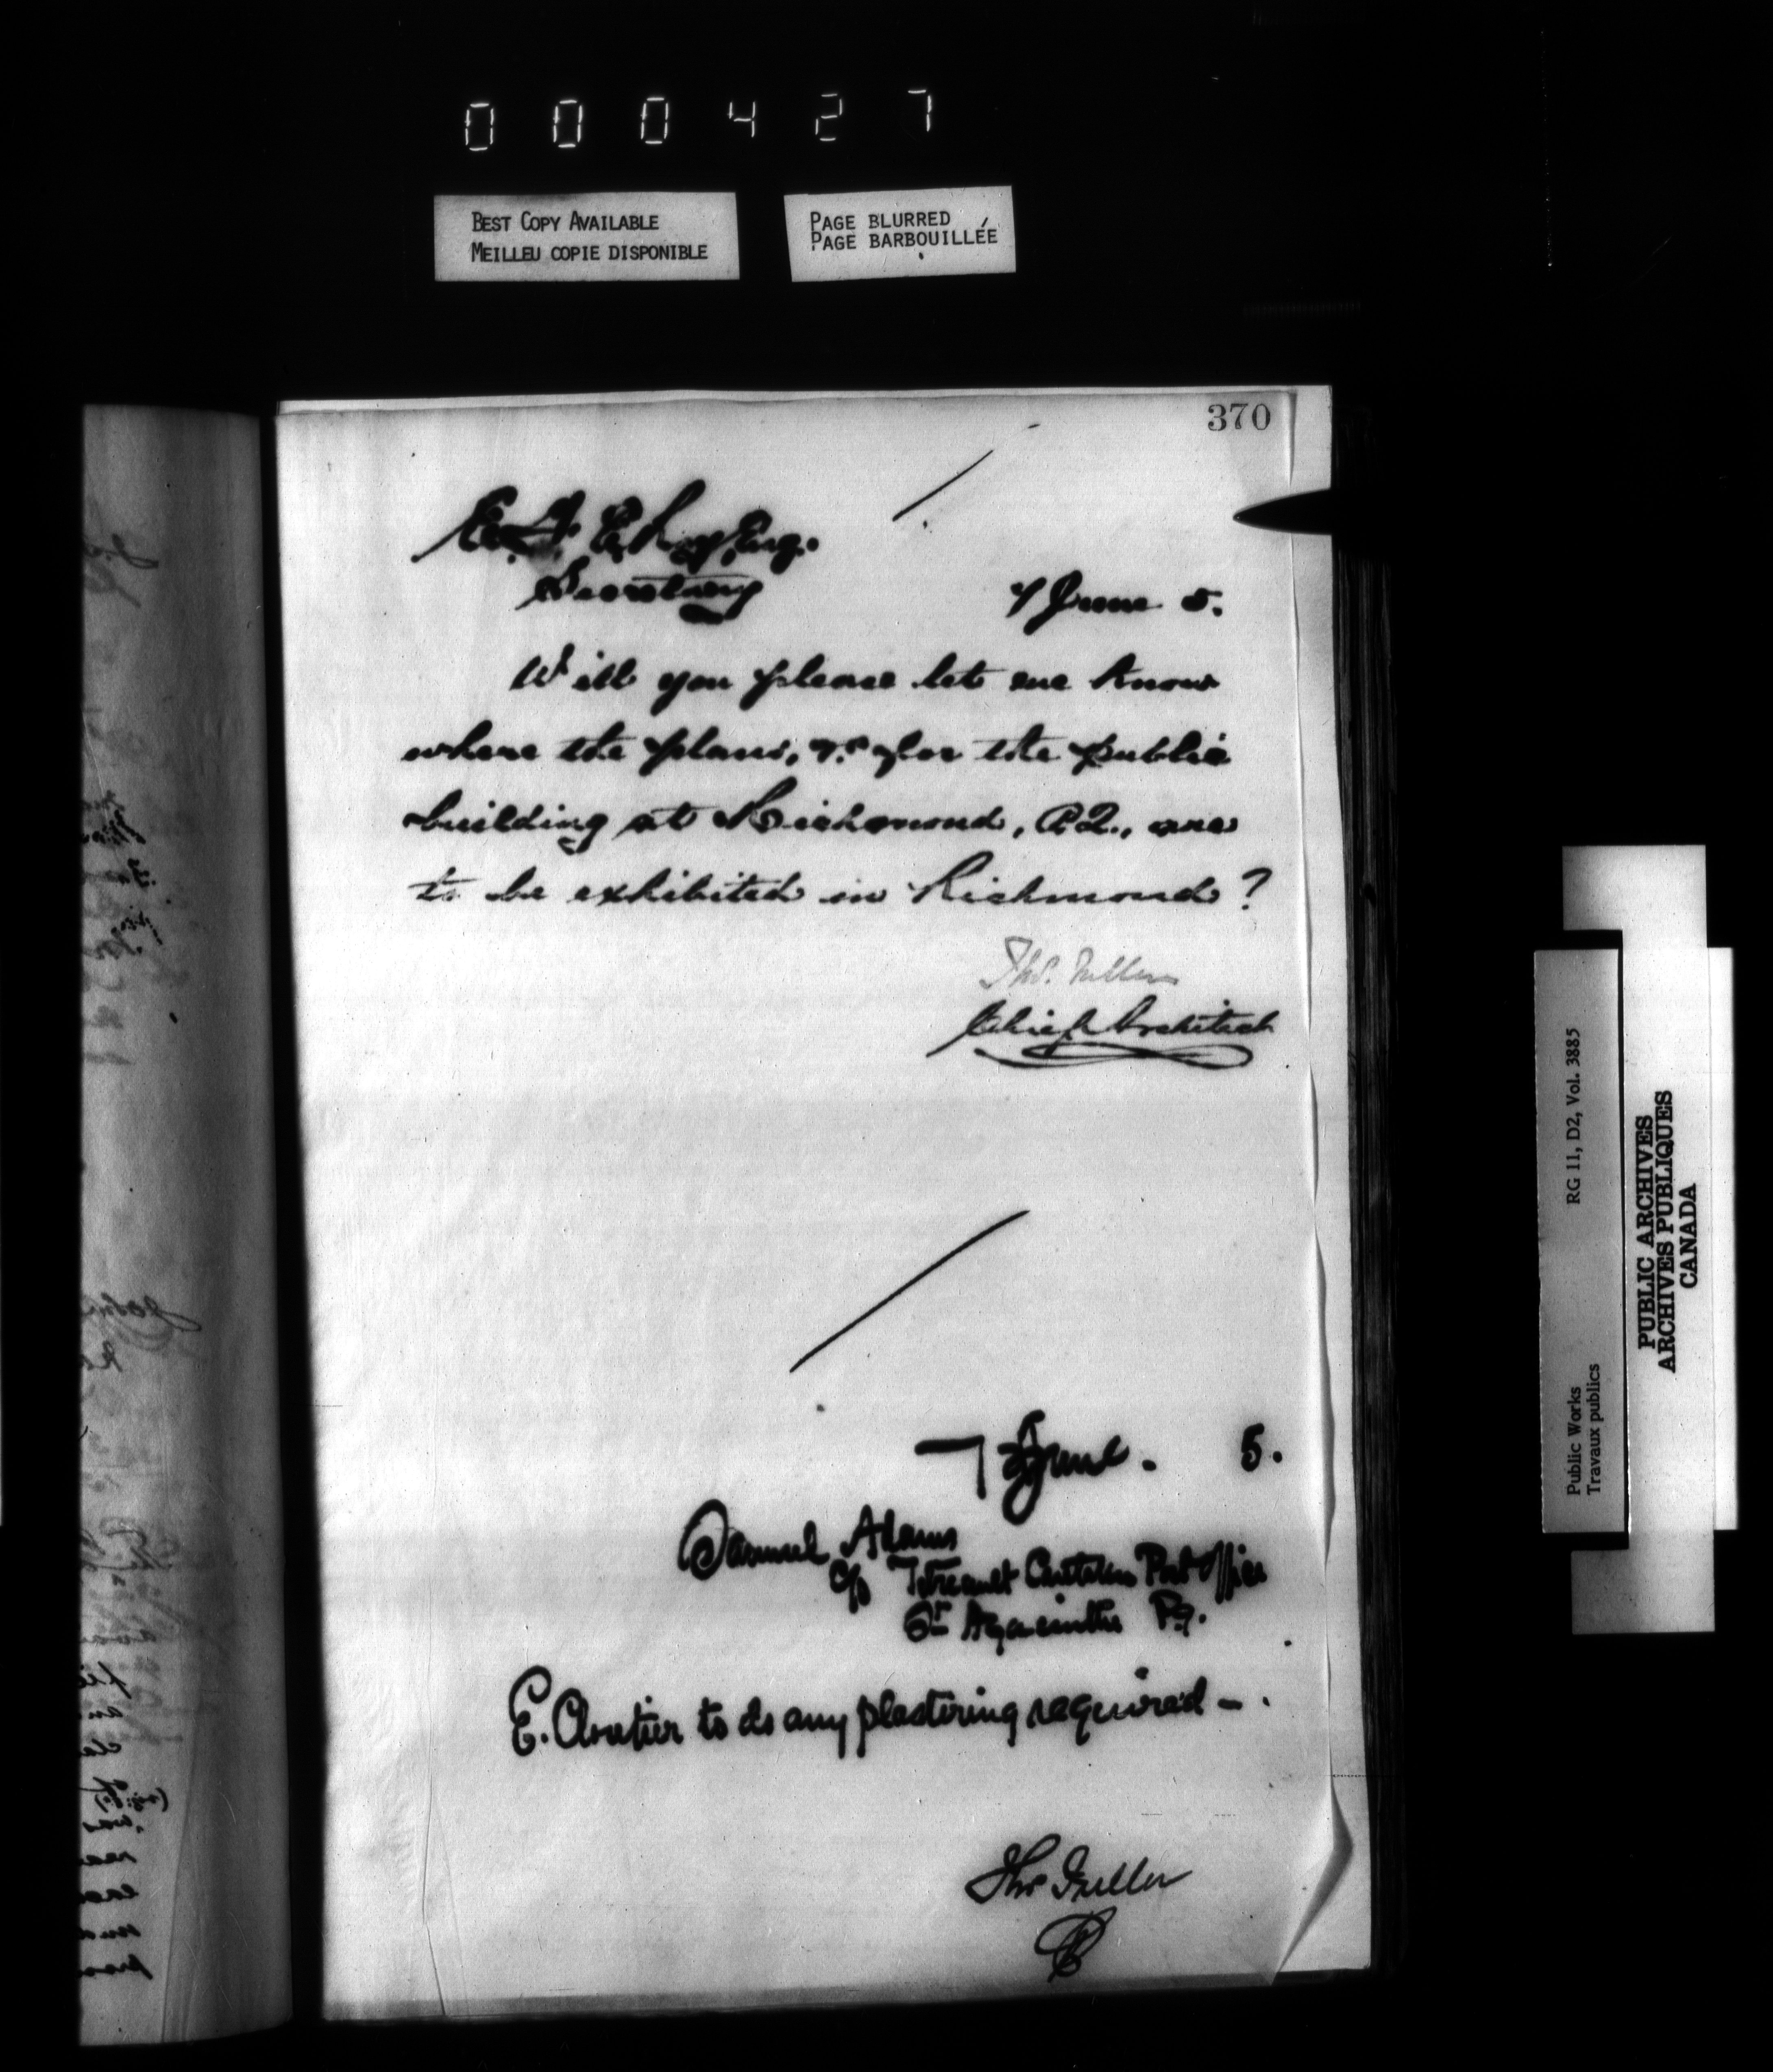 000427
BEST COPY AVAILABLE
MEILLEU COPIE DISPONIBLE
PAGE BLURRED
PAGE BARBOUILLÉE
370
E. F. E. Roy, Esq.
Secretary
7 June 5.
Will you please let me know
where the plans, &c for the public
building at Richmond, P.Q., are
to be exhibited in Richmond?
Thos. Fuller
Chief Architect
7 June. 5.
Samuel Adams
c/o Tetreault Post Office
St Hyacinthe P.Q.
E. Cloutier to do any plastering required —.
Thos Fuller
Public Works
Travaux publics
RG 11, D2, Vol. 3885
PUBLIC ARCHIVES
ARCHIVES PUBLIQUES
CANADA